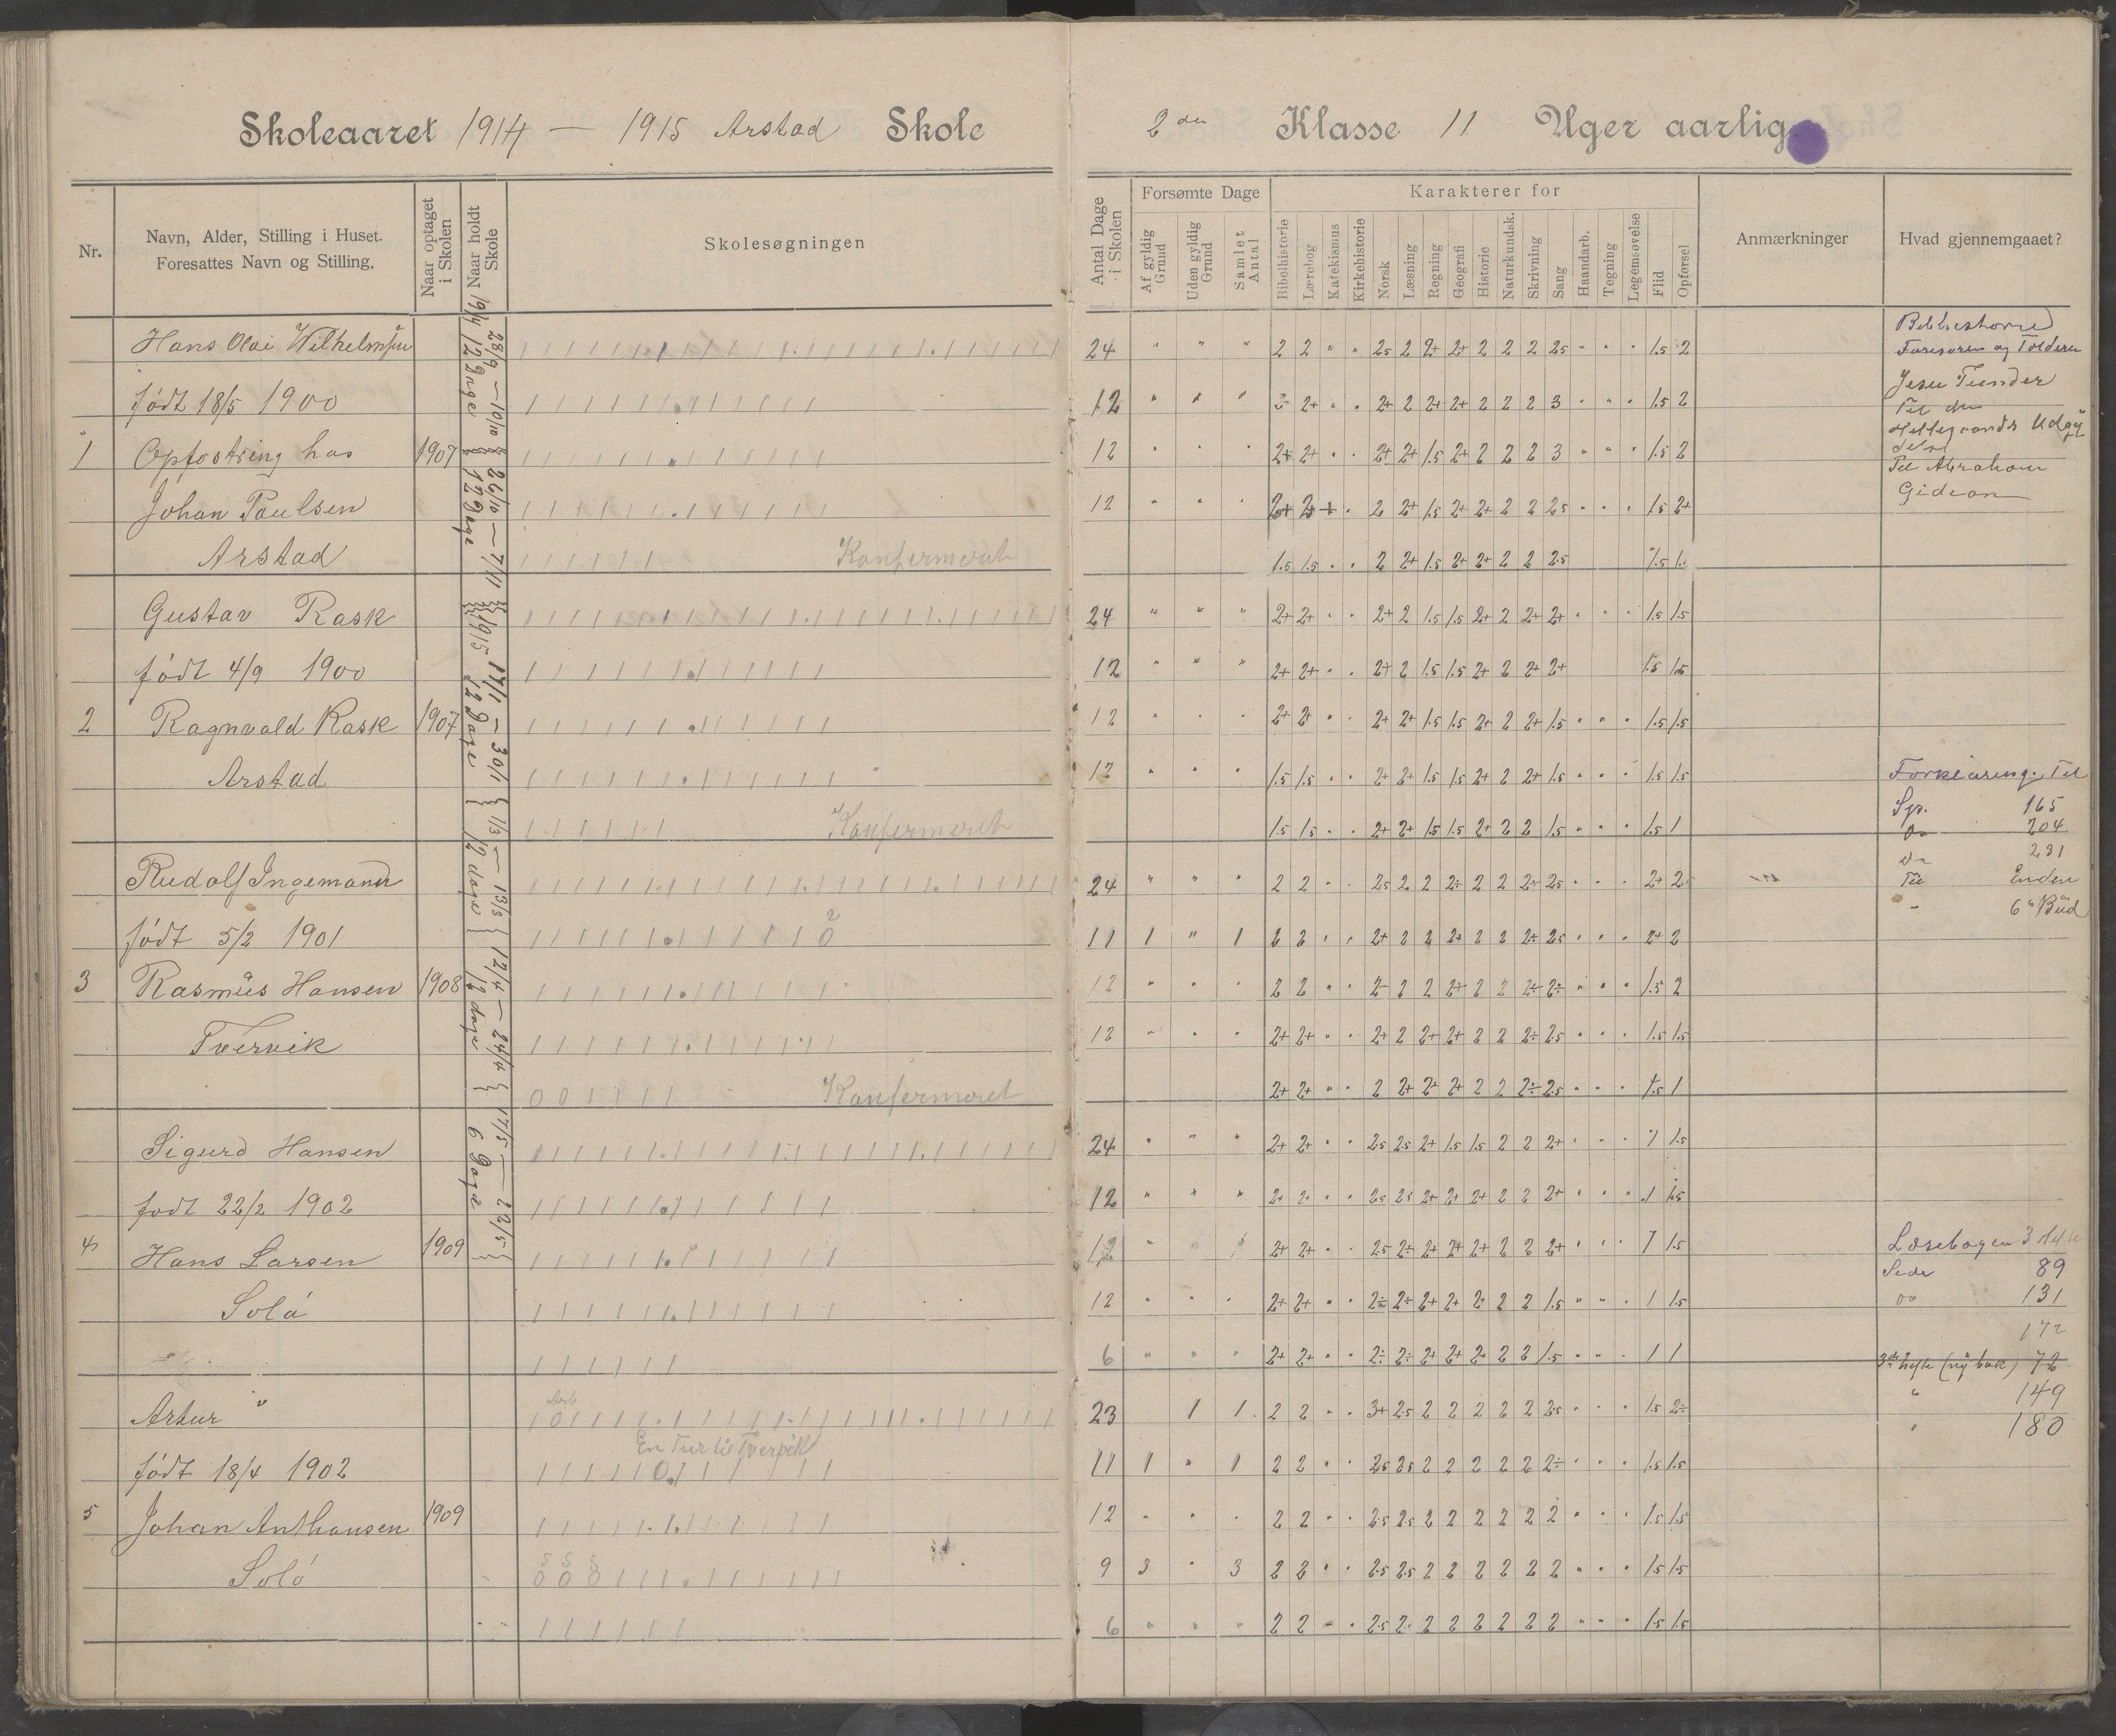 Skoleaaret 1914 — 1915 Arstad Skole
2den Klasse 11 Uger aarlig
Nr.
Navn, Alder, Stilling i Huset.
Foresattes Navn og Stilling.
Naar optaget i Skolen
Naar holdt Skole
Skolesøgningen
Antal Dage i Skolen
Forsømte Dage
Af gyldig Grund
Uden gyldig Grund
Samlet Antal
Karakterer for
Bibelhistorie
Lærebog
Katekismus
Kirkehistorie
Norsk
Læsning
Regning
Geografi
Historie
Naturkundsk.
Skrivning
Sang
Haandarb.
Tegning
Legemsøvelse
Flid
Opførsel
Anmærkninger
Hvad gjennemgaaet?
28/9 — 10/10
26/10 — 7/11
12 Dage
1915 17/1 — 30/1
12 Dage
1/3 — 13/3
12 dage
12/4 — 24/4
12 dage
17/5 — 22/5
6 Dage
Hans Olai Wilhelmsen
24 " " " 2 2 " " 2.5 2 2+ 2+ 2 2 2 2.5 " " " 1.5 2
født 18/5 1900
12 " " " 2+ 2+ " " 2+ 2 2+ 2+ 2 2 2 3 " " " 1.5 2
1 Opfostring hos 1907
12 " " " 2+ 2+ " " 2+ 2+ 1.5 2+ 2 2 2 3 " " " 1.5 2
Johan Paulsen
12 " " " 2+ 2+ 2 2+ 1.5 2+ 2+ 2 2 2.5 " " " 1.5 2+
Arstad
Konfermeret
1.5 1.5 " " 2 2+ 1.5 2+ 2+ 2 2 2.5
Gustav Rask
24 " " " 2+ 2+ " " 2+ 2 1.5 1.5 2+ 2 2+ 2+ " " " 1.5 1.5
født 4/9 1900
12 " " " 2+ 2+ " " 2+ 2 1.5 1.5 2+ 2 2+ 2+ 1.5 1.5
2 Ragnvald Rask 1907
12 " " " 2+ 2+ " " 2+ 2+ 1.5 1.5 2+ 2 2+ 1.5 " " " 1.5 1.5
Arstad
12 " " " 1.5 1.5 " " 2+ 2+ 1.5 1.5 2+ 2 2+ 1.5 " " " 1.5 1.5
Konfermeret
1.5 1.5 " " 2+ 2+ 1.5 1.5 2+ 2 2 1.5 " " " 1.5 1
Rudolf Ingemann
24 " " " 2 2 " " 2.5 2 2 2÷ 2 2 2÷ 2.5 " " " 2+ 2
født 5/2 1901
11 1 " 1 2 2 " " 2+ 2 2 2+ 2 2 2÷ 2.5 " " " 2+ 2
3 Rasmus Hansen 1908
12 " " " 2 2 " " 2 2 2 2+ 2 2 2÷ 2÷ " " " 1.5 2
Tvervik
12 " " " 2+ 2+ " " 2+ 2 2+ 2+ 2 2 2÷ 2.5 " " " 1.5 1.5
0 0
Konfermeret
2+ 2+ " " 2 2+ 2+ 2+ 2 2 2÷ 2.5 " " " 1.5 1
Sigurd Hansen
24 " " " 2+ 2+ " " 2.5 2.5 2+ 1.5 1.5 2 2 2+ " " " 1 1.5
født 22/2 1902
12 " " " 2+ 2+ " " 2.5 2.5 2+ 2+ 2+ 2 2 2+ " " " 1 1.5
4 Hans Larsen 1909
12 " " " 2+ 2+ " " 2.5 2÷ 2+ 2+ 2+ 2 2 2+ " " " 1 1.5
Solö
12 " " " 2+ 2+ " " 2÷ 2÷ 2+ 2+ 2+ 2 2 1.5 " " " 1 1.5
6 " " " 2+ 2+ " " 2÷ 2÷ 2+ 2+ 2+ 2 2 1.5 " " " 1 1
Artur "
23 1 1 2 2 " " 3+ 2.5 2 2 2 2 2 2.5 " " " 1.5 2÷
En Tur til Tverpik
født 18/4 1902
11 1 " 1 2 2 " " 2.5 2.5 2 2 2 2 2 2÷ " " " 1.5 1.5
5 Johan Anthonsen 1909
12 " " " 2 2 " " 2.5 2.5 2 2 2 2 2 2 " " " 1.5 1.5
Solö
9 3 " 3 2 2 " " 2.5 2.5 2 2 2 2 2 2 " " " 1.5 1.5
6 " " " 2 2 " " 2.5 2 2 2 2 2 2 2 " " " 1.5 1.5
Farisæren og Tolderen
Jesu Tunder
Til den
Helligaands Udgy
delse
Til Abraham
Gideon
Forklaring. Til
Sp. 165
Do 204
Do 231
Til Enden
" 6" Bud
Læsebogen 3 Hefte
Side 89
Do 131
172
3de hefte (ny bok) 72
" 149
" 180